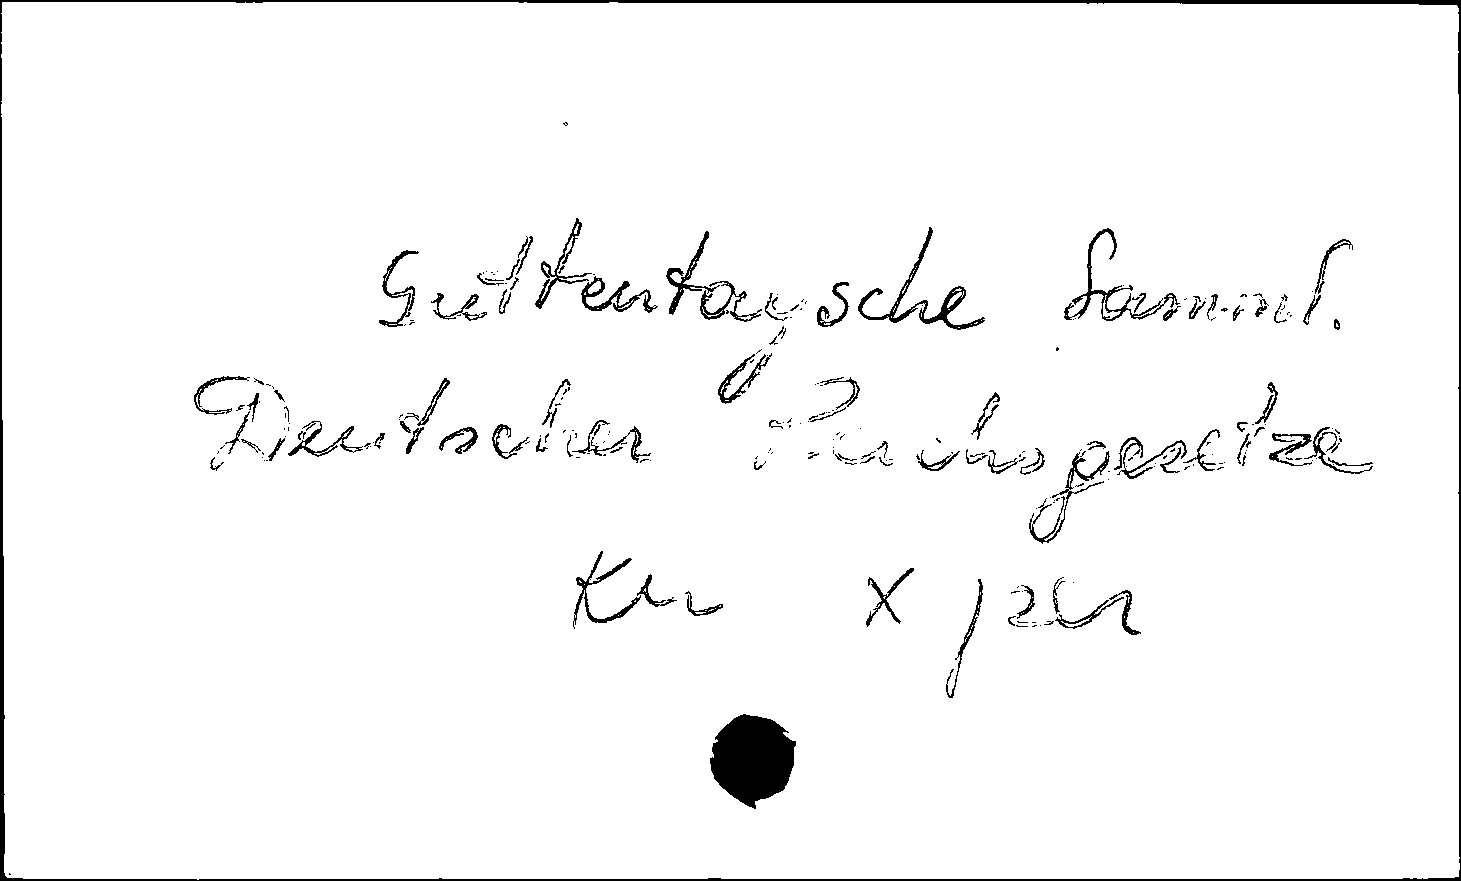 Guttentagsche Samml.
Deutscher Reichsgesetze